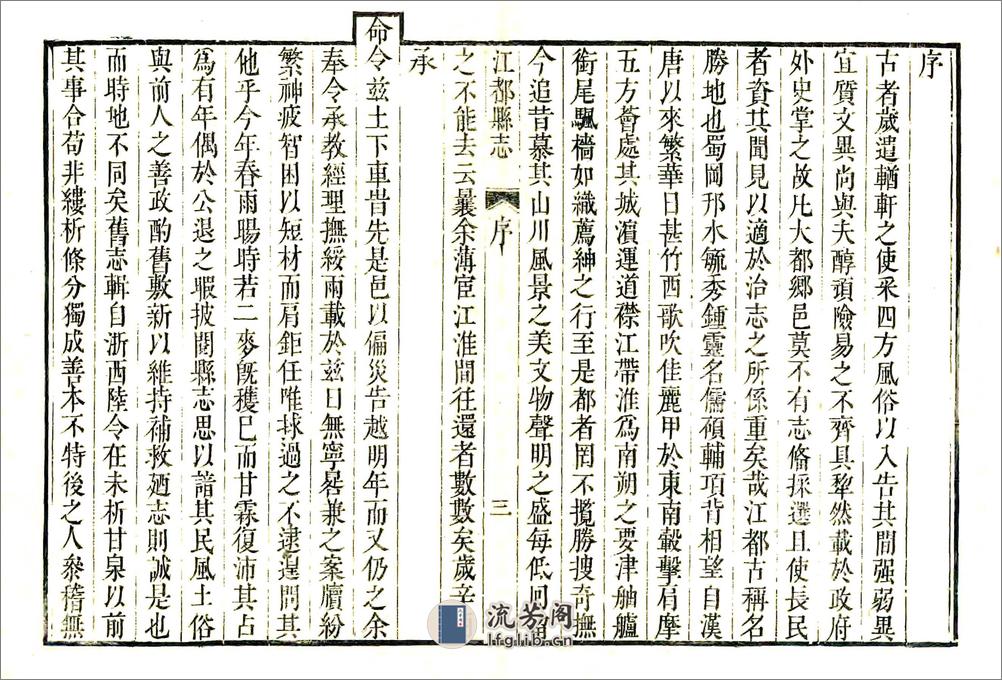 序
古者歲遣輶軒之使采四方風俗以入告其間强弱異
宜質文異尚與夫醇頑險易之不齊具犂然載於政府
外史掌之故凡大都鄉邑莫不有志俻採選且使長民
者資其聞見以適於治志之所係重矣哉江都古稱名
勝地也蜀岡邗水毓秀鍾靈名儒碩輔項背相望自漢
唐以來繁華日甚竹西歌吹佳麗甲於東南轂擊肩摩
五方薈處其城濵運道襟江帶淮爲南朔之要津舳艫
銜尾颿檣如織薦紳之行至是都者罔不攬勝搜奇撫
今追昔慕其山川風景之美文物聲明之盛每低回留
江都縣志
序
三
之不能去云曩余薄宦江淮間往還者數數矣歲辛
承
命令兹土下車昔先是邑以偏災告越明年而又仍之余
奉令承教經理撫綏兩載於兹日無寧晷兼之案牘紛
繁神疲智困以短材而肩鉅任唯球過之不逮遑問其
他乎今年春雨暘時若二麥旣穫巳而甘霖復沛其占
爲有年偶於公退之暇披閱縣志思以諳其民風土俗
與前人之善政酌舊敷新以維持補救廼志則誠是也
而時地不同矣舊志輯自浙西陸令在未析甘泉以前
其事合苟非縷析條分獨成善本不特後之人叅稽無
流芳阁
lfglib.cn